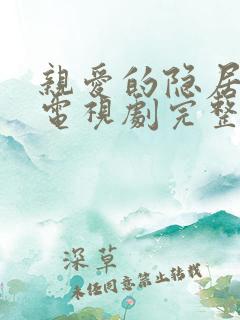 親愛的隐居
電視劇完整
深草
未任同意禁止转载